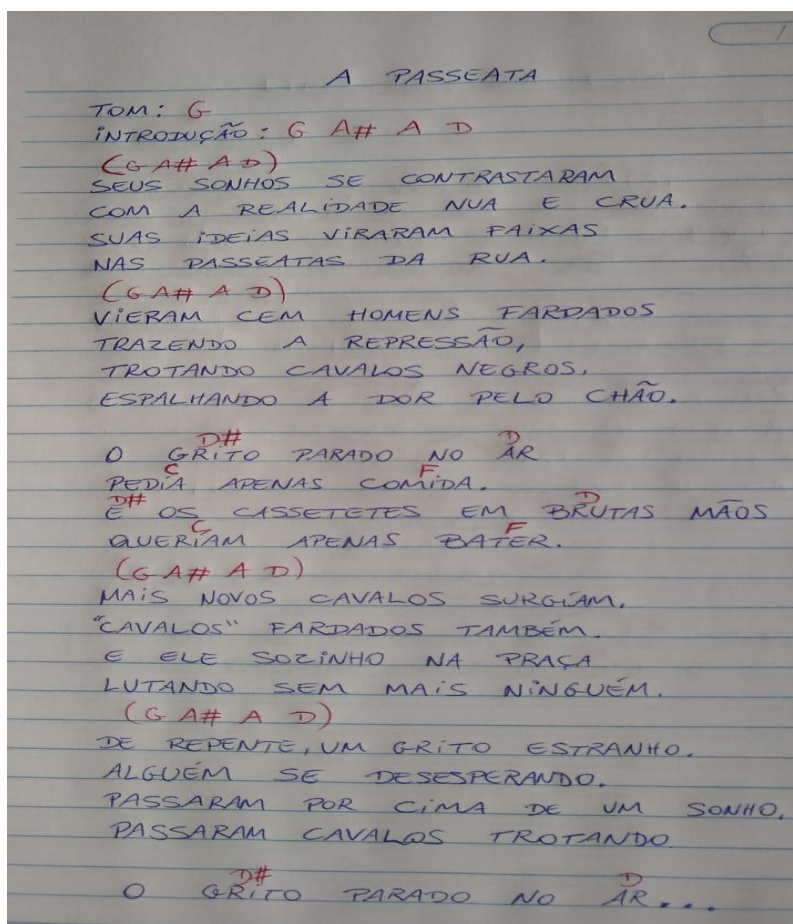 1
A PASSEATA
TOM: G
INTRODUÇÃO: G A# A D
(G A# A D)
SEUS SONHOS SE CONTRASTARAM
COM A REALIDADE NUA E CRUA.
SUAS IDEIAS VIRARAM FAIXAS
NAS PASSEATAS DA RUA.
(G A# A D)
VIERAM CEM HOMENS FARDADOS
TRAZENDO A REPRESSÃO,
TROTANDO CAVALOS NEGROS,
ESPALHANDO A DOR PELO CHÃO.
D# D
O GRITO PARADO NO AR
C F
PEDIA APENAS COMIDA.
D# D
E OS CASSETETES EM BRUTAS MÃOS
C F
QUERIAM APENAS BATER.
(G A# A D)
MAIS NOVOS CAVALOS SURGIAM.
"CAVALOS" FARDADOS TAMBÉM.
E ELE SOZINHO NA PRAÇA
LUTANDO SEM MAIS NINGUÉM.
(G A# A D)
DE REPENTE, UM GRITO ESTRANHO.
ALGUÉM SE DESESPERANDO.
PASSARAM POR CIMA DE UM SONHO.
PASSARAM CAVALOS TROTANDO
D# D
O GRITO PARADO NO AR...